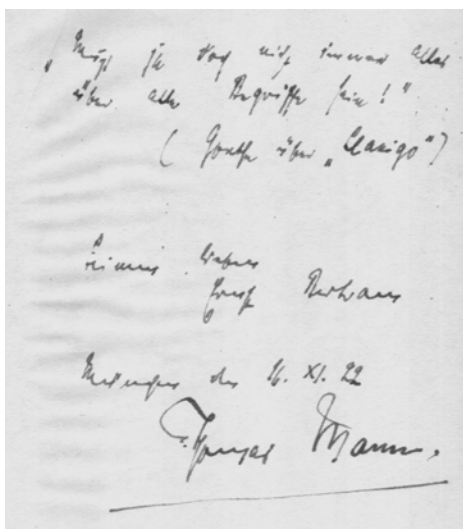 „Muß ja doch nicht immer alles
über alle Begriffe sein!“
( Goethe über „Clavigo“)
Seinem lieben
Ernst Bertram
München den 16. XI. 22
Thomas Mann.